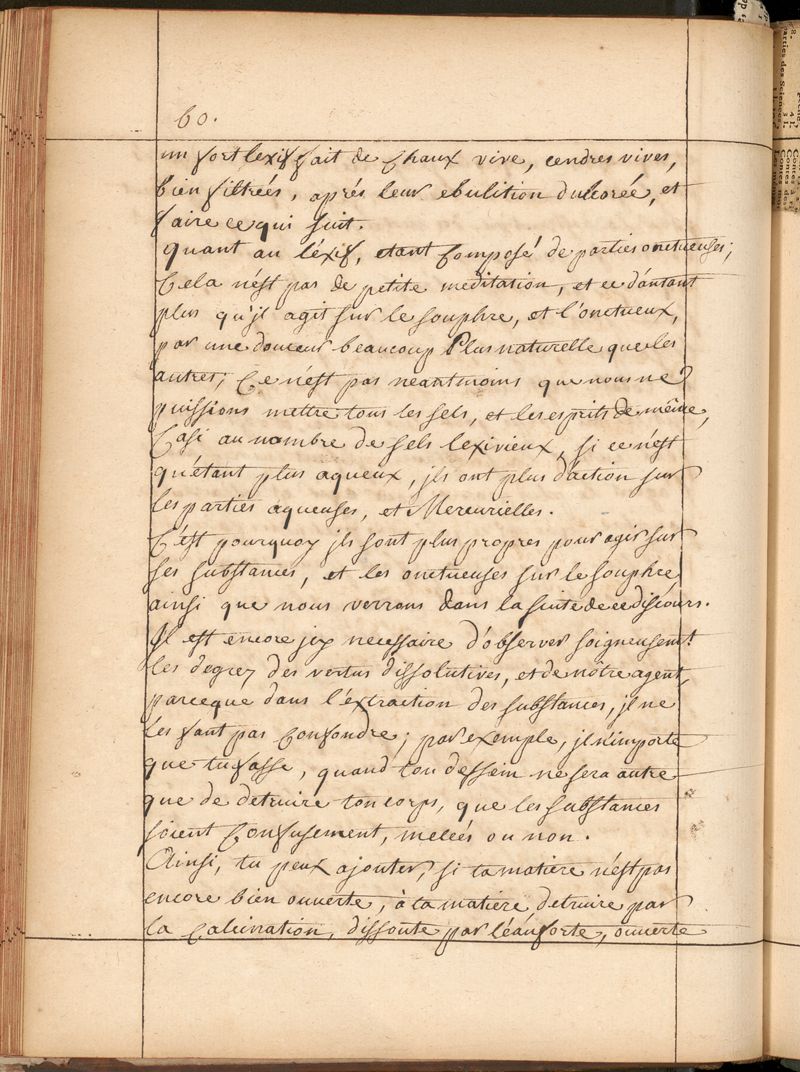 60.
un fort lexif fait de Chaux vive, cendres vives,
bien filtrées, aprés leur ebulition dulcorée, et
faire ce qui suit.
quant au léxif, etant Composé de parties onctueuses;
Cela n'est pas de petite meditation, et ce d'autant
plus qu'jl agit sur le souphre, et l'onctueux,
par une douceur beaucoup Plus naturelle que les
autres; Ce n'est pas neantmoins que nous ne
puissions mettre tous les sels, et les esprits de même,
Casi au nombre de sels lexivieux, si ce n'est
qu'étant plus aqueux, jls ont plus d'action sur
les parties aqueuses, et Mercurielles.
C'est pourquoy jls sont plus propres pour agir sur
ses substances, et les onctueuses sur le souphre
ainsi que nous verrons dans la suite de ce discours.
Jl est encore jcy necessaire d'observer soigneusemt.
les degrez des vertus dissolutives, et de nôtre agent,
parceque dans l'éxtraction des substances, jl ne
les faut pas Confondre; par exemple, jl n'importe
que tu fasse, quand ton dessein ne sera autre
que de detruire ton corps, que les substances
soient Confusement, melées ou non.
Ainsi, tu peux ajouter, si ta matière n'est pas
encore bien ouverte, à ta matière detruire par
la Calcination, dissoute par l'éau forte, ouverte